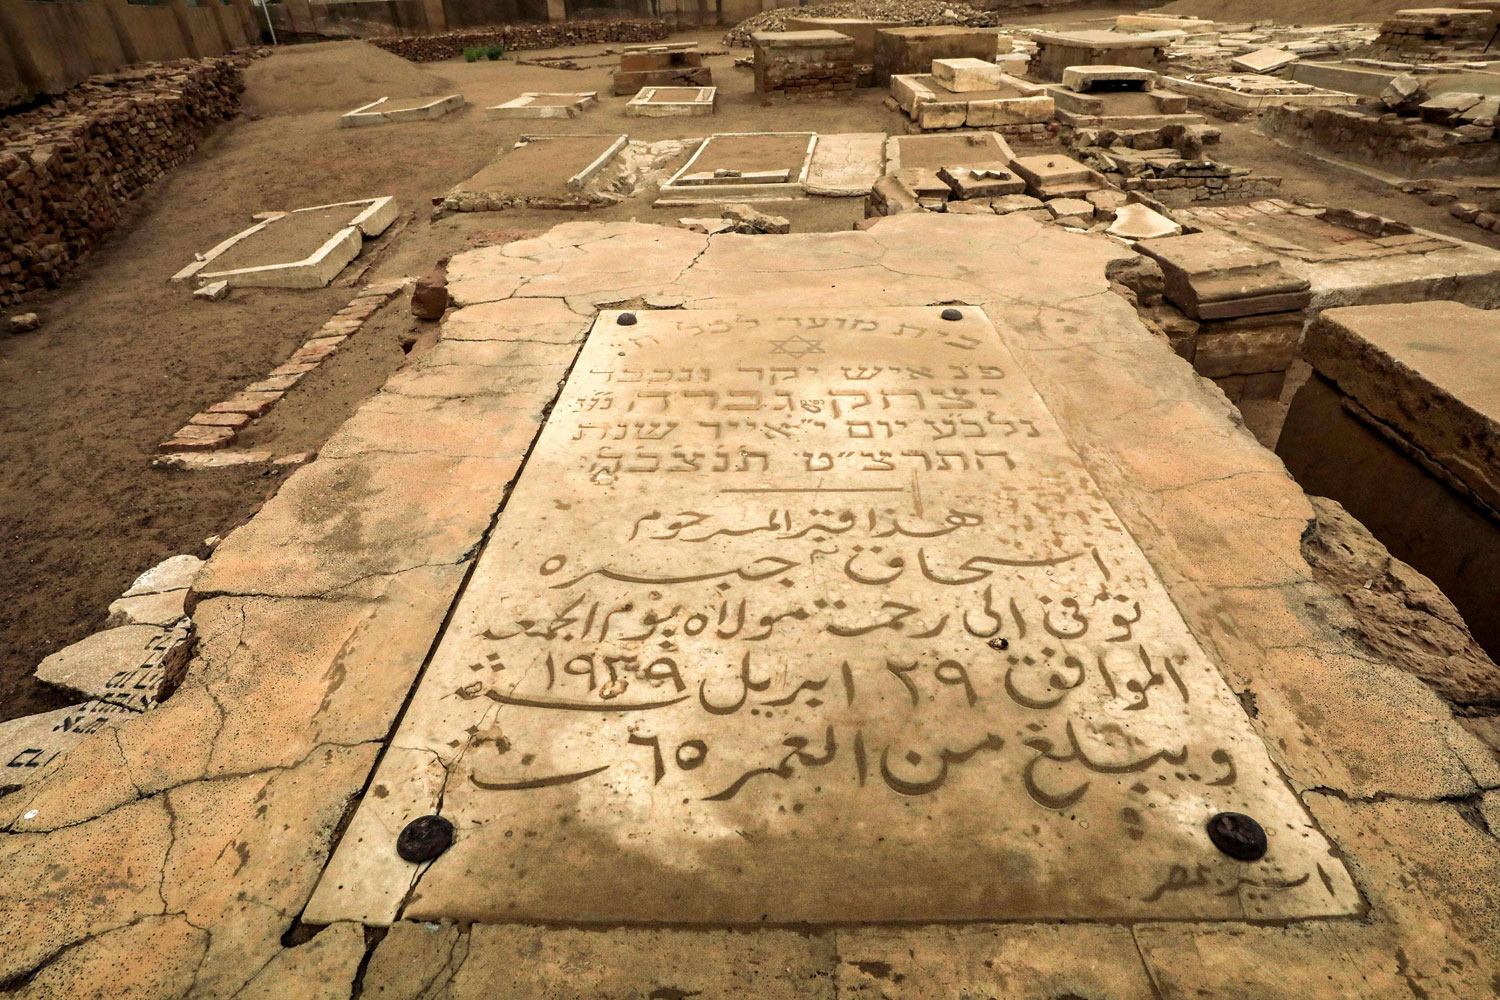 בית מועד לכל חי
פ׳נ איש יקר ונכבד
יצחק גברה
נלב״ע יום י׳ אייר שנת
התרצ״ט תנצבה
هذا قبر المرحوم
اسحاق جبره
توفى الى رحمة مولاه يوم الجمعة
الموافق ٢٩ ابريل ١٩٣٩ سنة
ويبلغ من العمر ٦٥ سنة